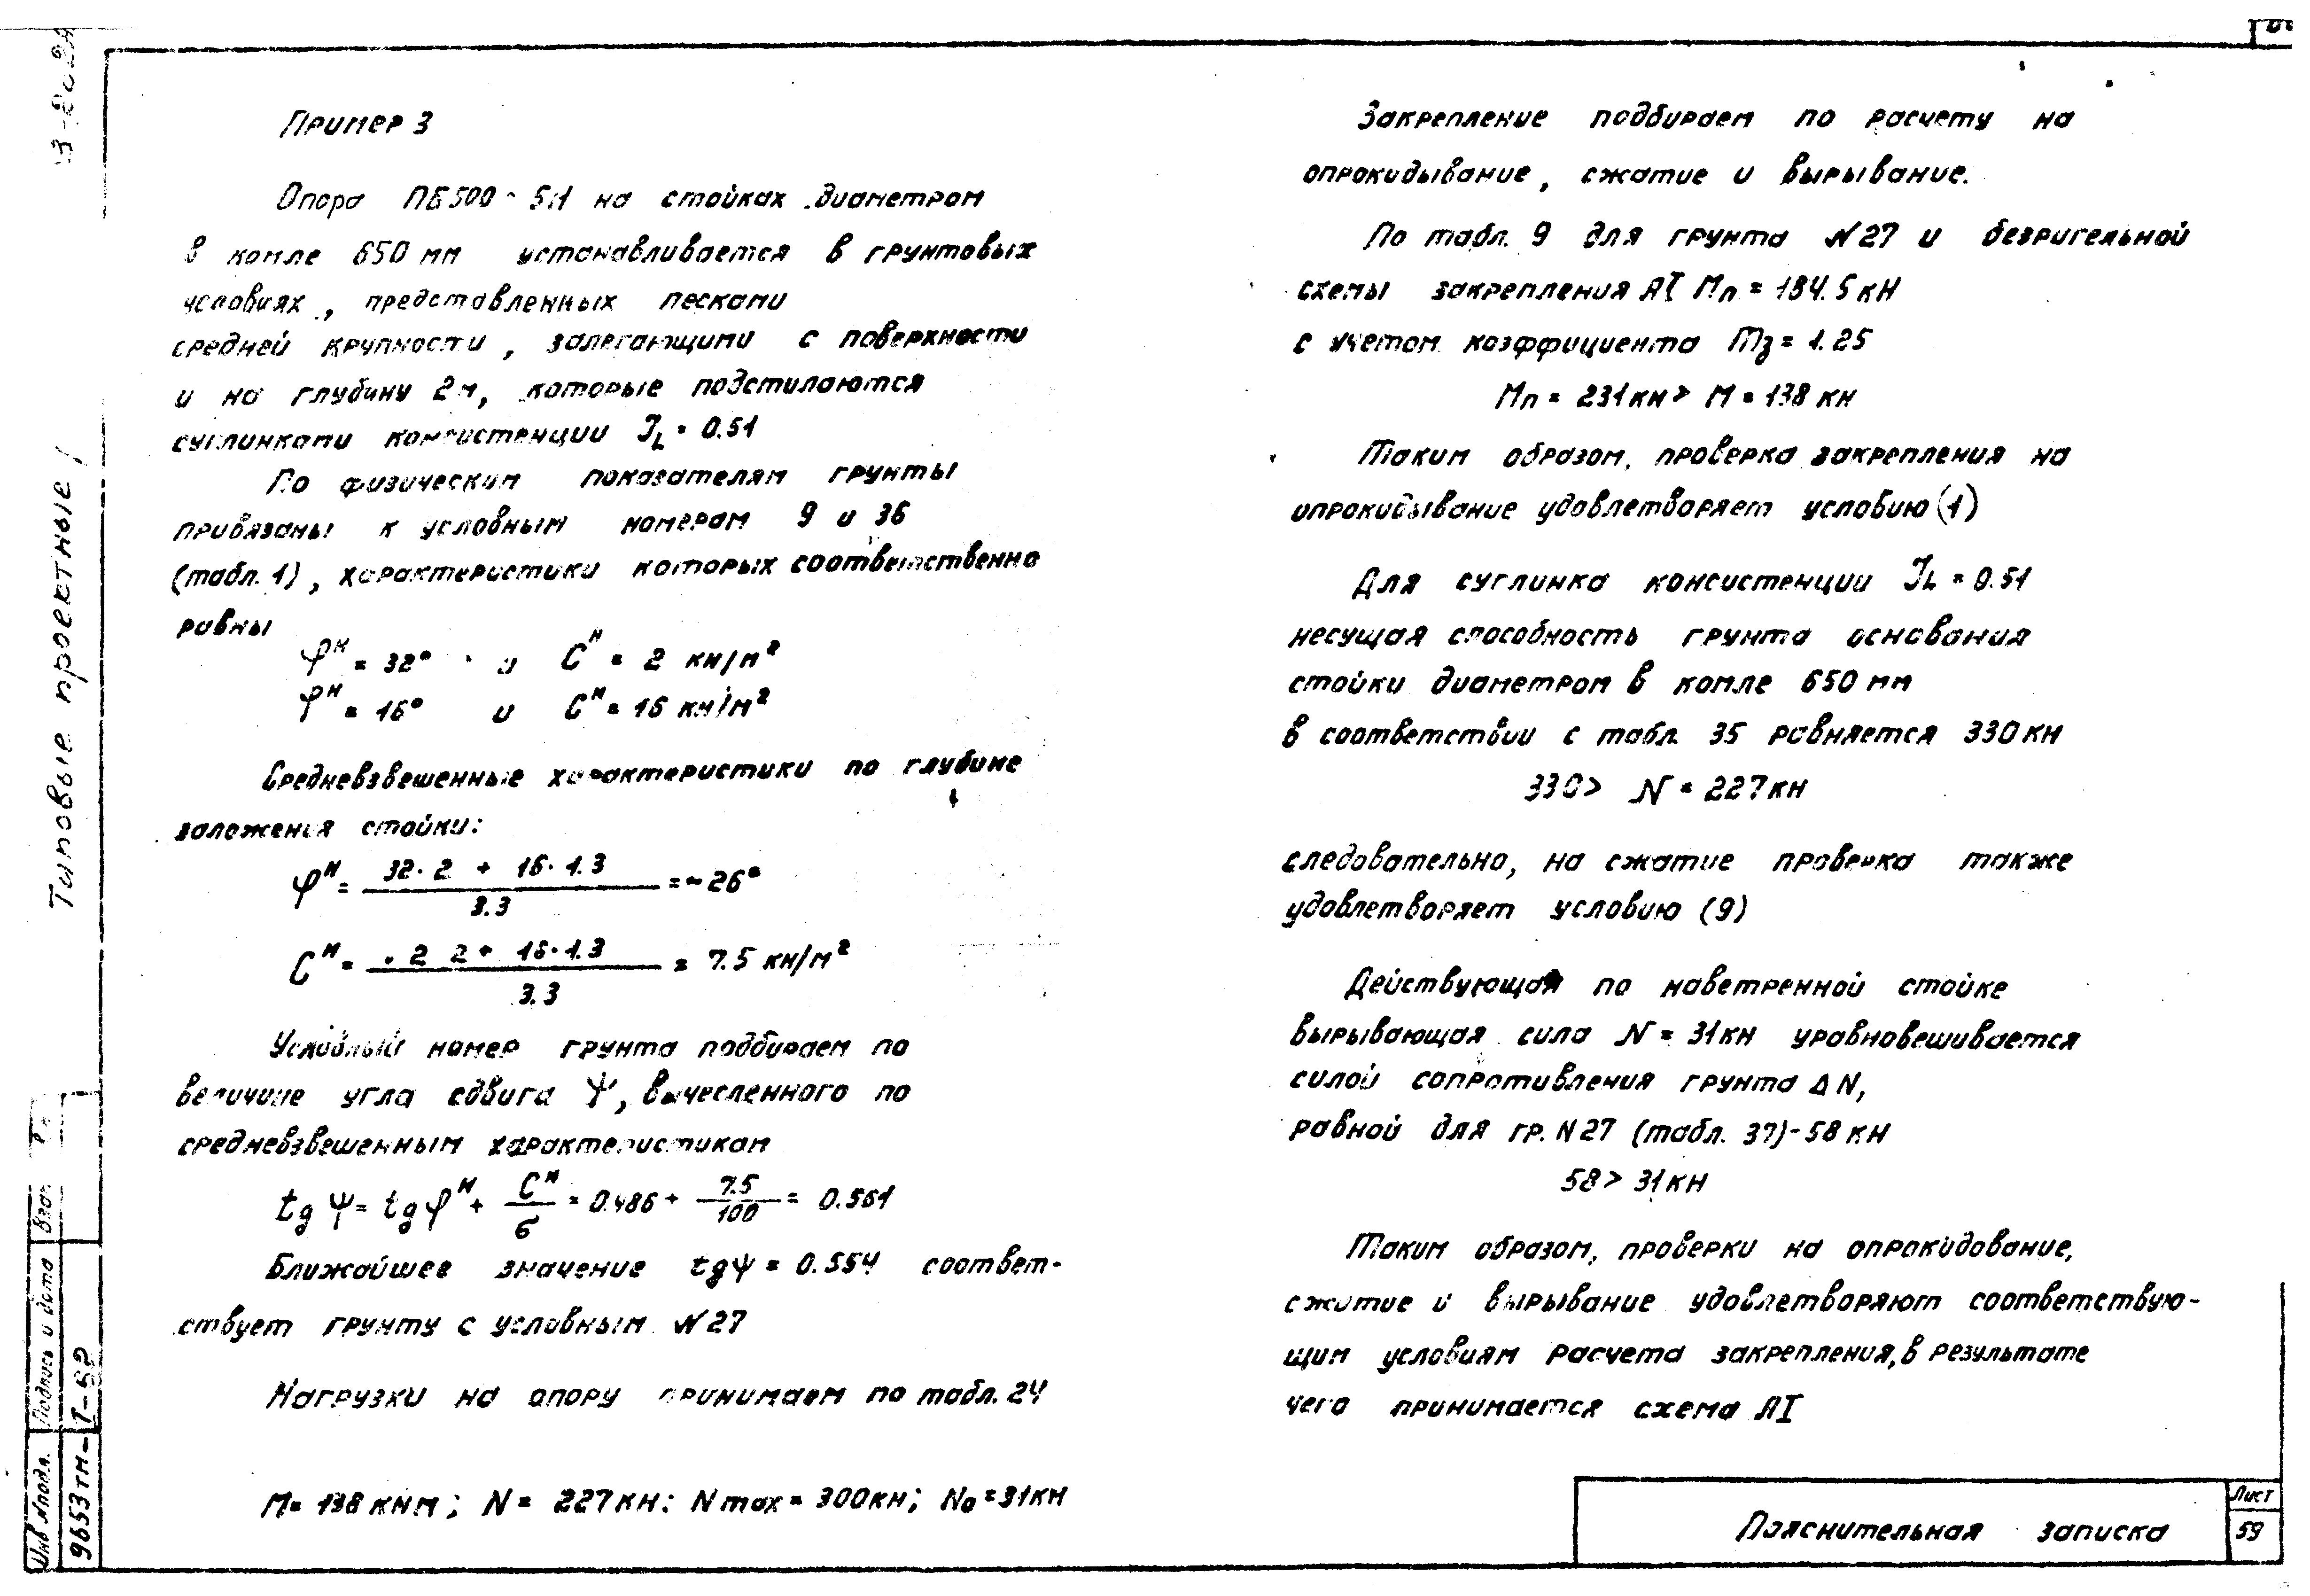 Пример 3
Опора ПБ500-5:1 на стойках диаметром
в комле 650 мм устанавливается в грунтовых
условиях, представленных песками
средней крупности, залегающими с поверхности
и на глубину 2м, которые подстилаются
суглинками консистенции JL = 0.51
По физическим показателям грунты
привязаны к условным номерам 9 и 36
(табл. 1), характеристики которых соответственно
равны
φн = 32° и Cн = 2 кн/м²
φн = 16° и Cн = 16 кн/м²
Средневзвешенные характеристики по глубине
заложения стойки:
φн = 32·2 + 16·1.3 / 3.3 = ~26°
Cн = 2 2 + 16·1.3 / 3.3 = 7.5 кн/м²
Условный номер грунта подбираем по
величине угла сдвига Ψ, вычесленного по
средневзвешенным характеристикам
tg Ψ = tg φн + Cн/б = 0.486 + 7.5/100 = 0.561
Ближайшее значение tgψ = 0.554 соответ-
ствует грунту с условным N27
Нагрузки на опору принимаем по табл. 24
M = 138 кнм; N = 227кн; N max = 300кн; No = 31кн
Закрепление подбираем по расчету на
опрокидывание, сжатие и вырывание.
По табл. 9 для грунта N27 и безригельной
схемы закрепления АI Мп = 184.5 кН
с учетом коэффициента mз = 1.25
Мп = 231кн > М = 138 кн
Таким образом, проверка закрепления на
опрокидывание удовлетворяет условию (1)
Для суглинка консистенции JL = 0.51
несущая способность грунта основания
стойки диаметром в комле 650 мм
в соответствии с табл. 35 равняется 330кн
330 > N = 227кн
следовательно, на сжатие проверка также
удовлетворяет условию (9)
Действующая по наветренной стойке
вырывающая сила N = 31кн уравновешивается
силой сопротивления грунта Δ N,
равной для гр. N27 (табл. 37)-58 кн
58 > 31кн
Таким образом, проверки на опрокидование,
сжатие и вырывание удовлетворяют соответствую-
щим условиям расчета закрепления, в результате
чего принимается схема АI
Пояснительная записка
Лист
59
Типовые проектные
Подпись и дата
Инв N подл.
9653тм-Т-